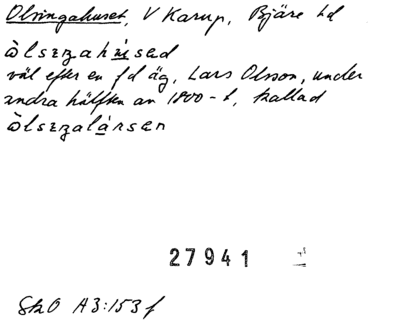 Olsingahuset, V Karup, Bjäre hd
òlsɪŋahúsəd
väl efter en f d äg, Lars Olsson, under
andra hälften av 1800-t, kallad
òlsɪŋalársən
27941
Sk0 A3:153 f